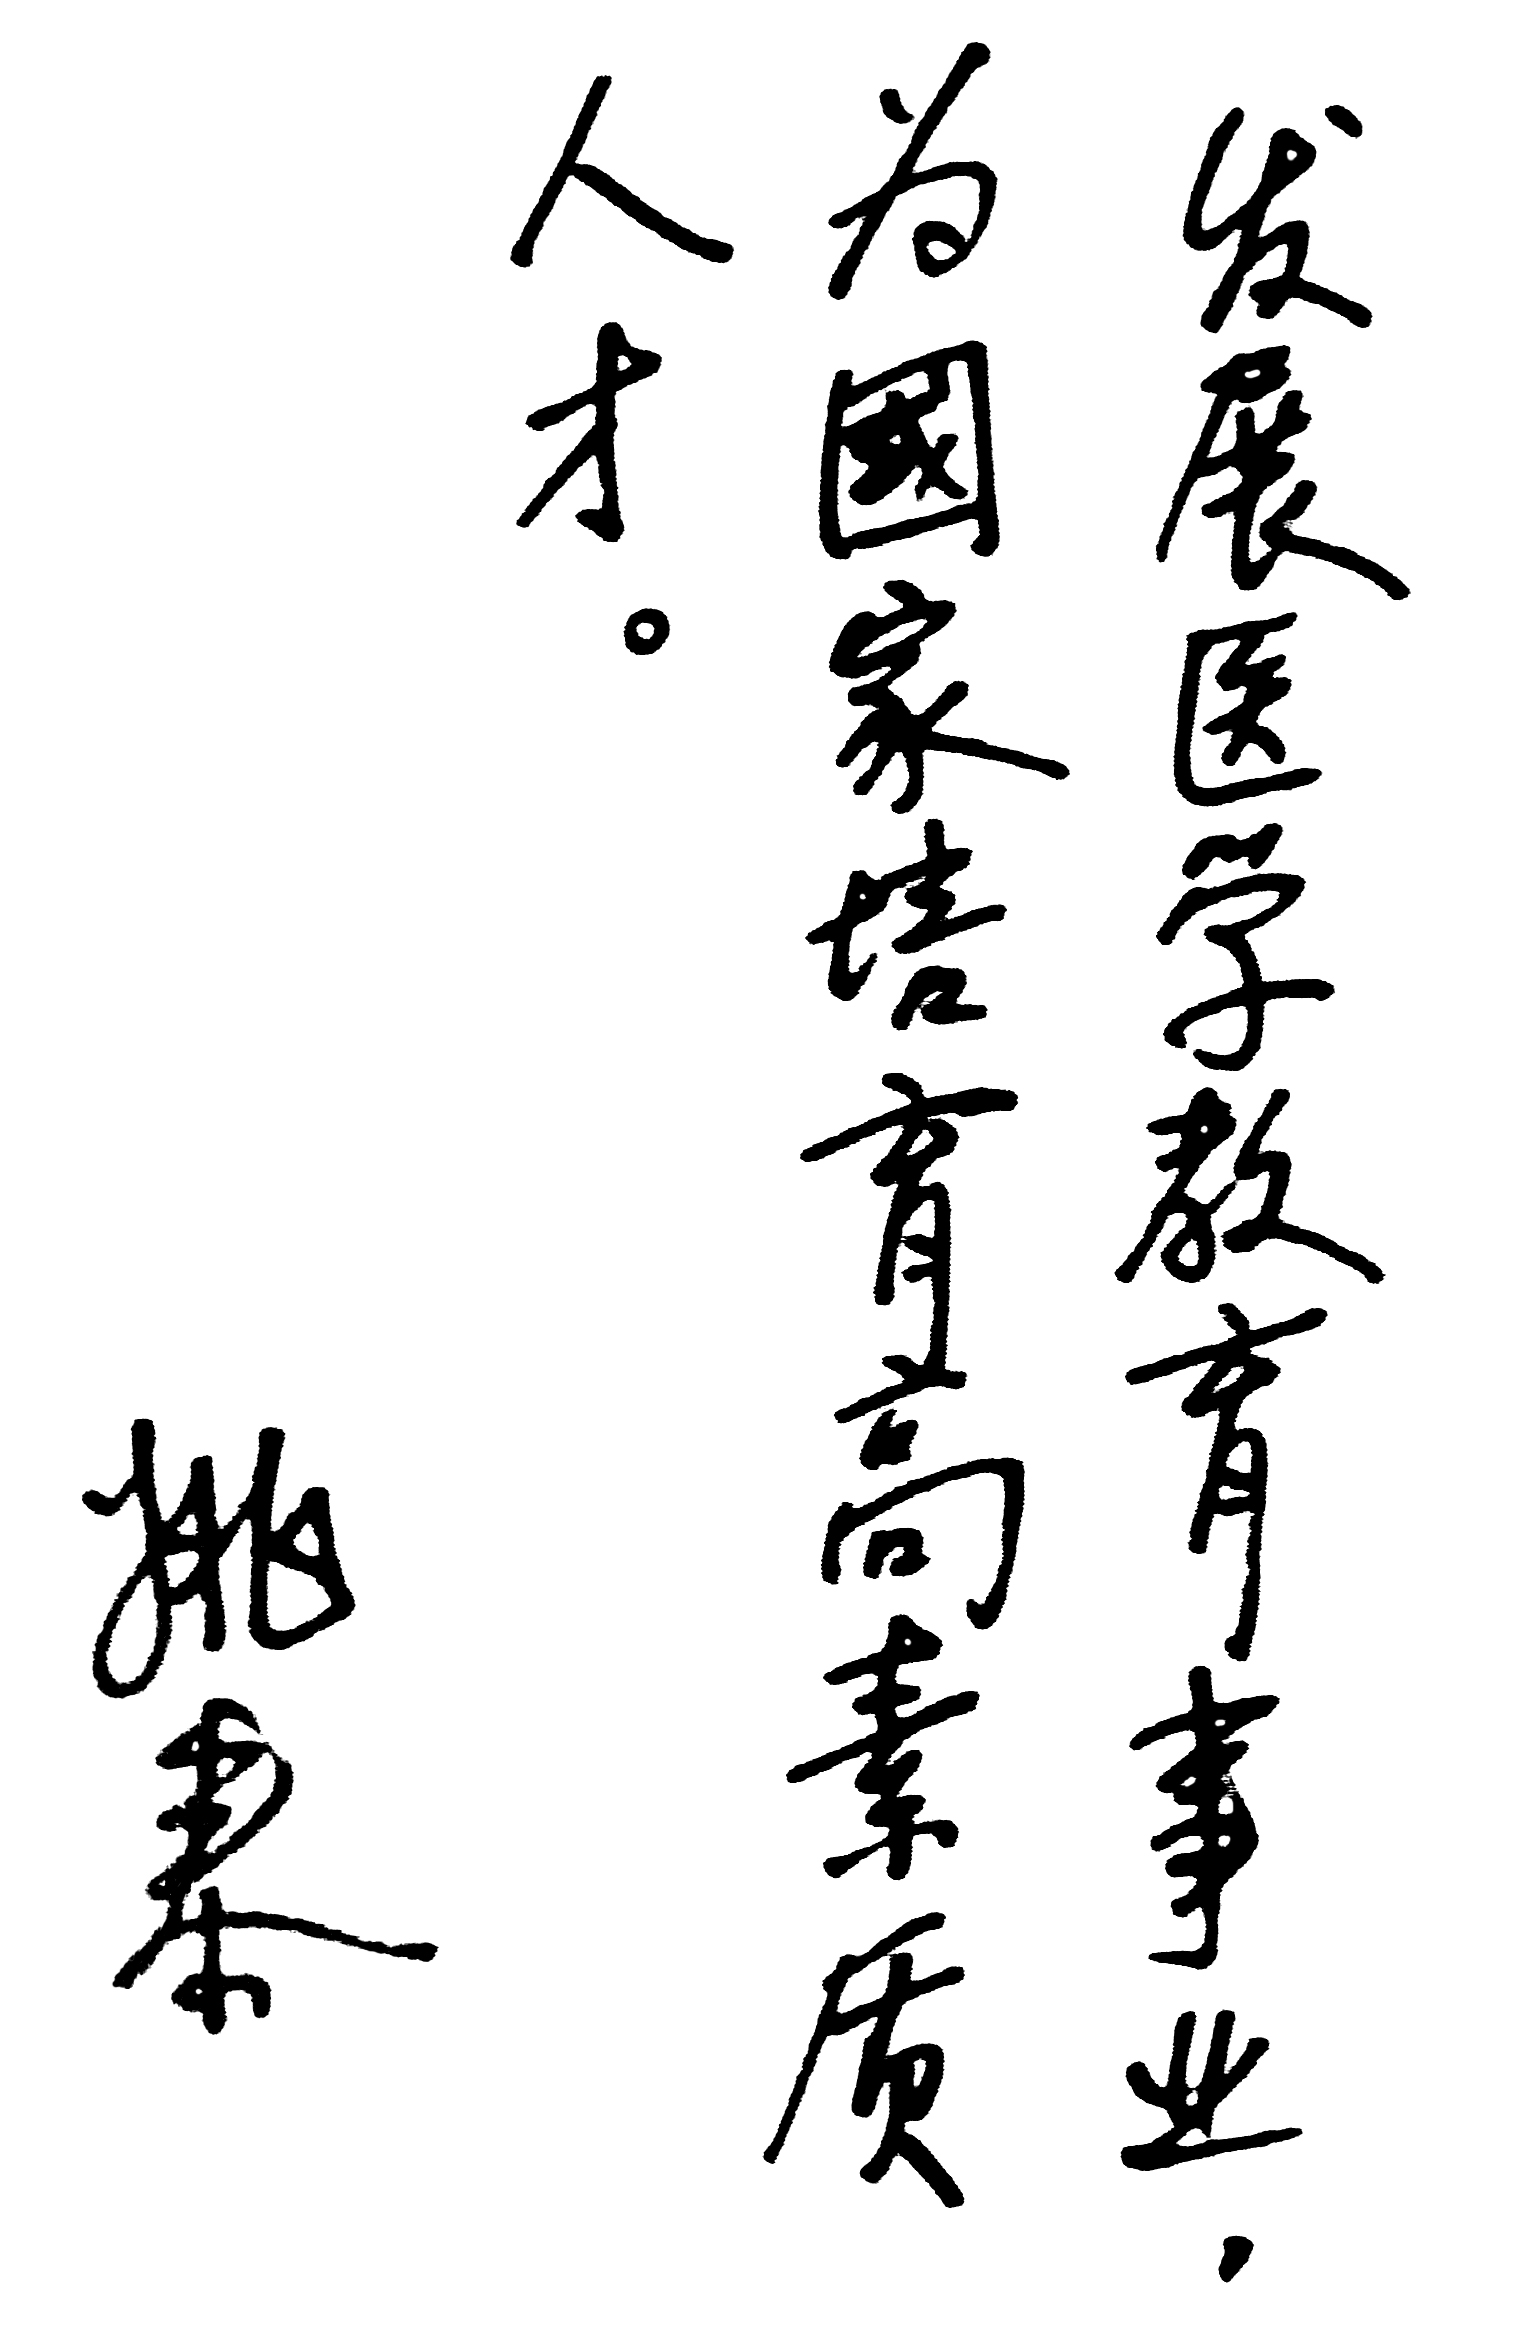 发展医学教育事业，
为國家培育高素质
人才。
姚泰